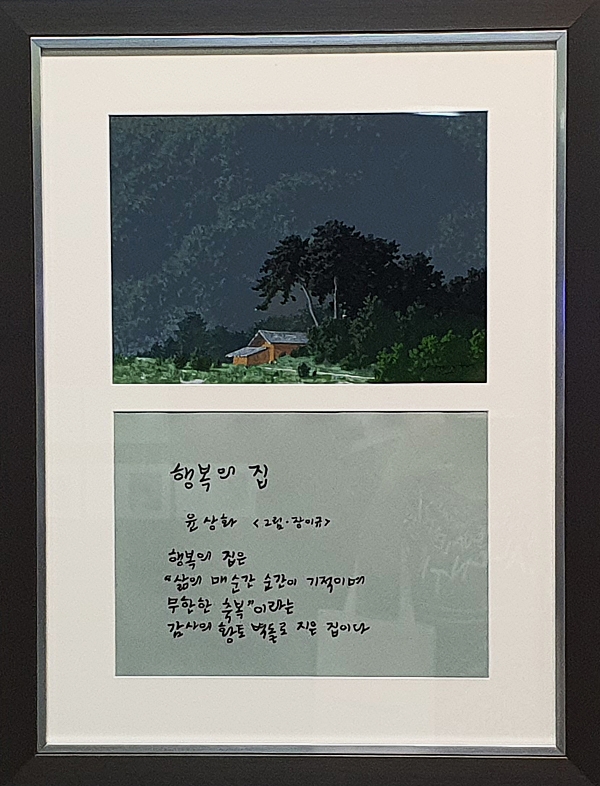 행복의 집
윤상화 <그림·장이규>
행복의 집은
"삶의 매 순간 순간이 기적이며
무한한 축복"이라는
감사의 황토 벽돌로 지은 집이다